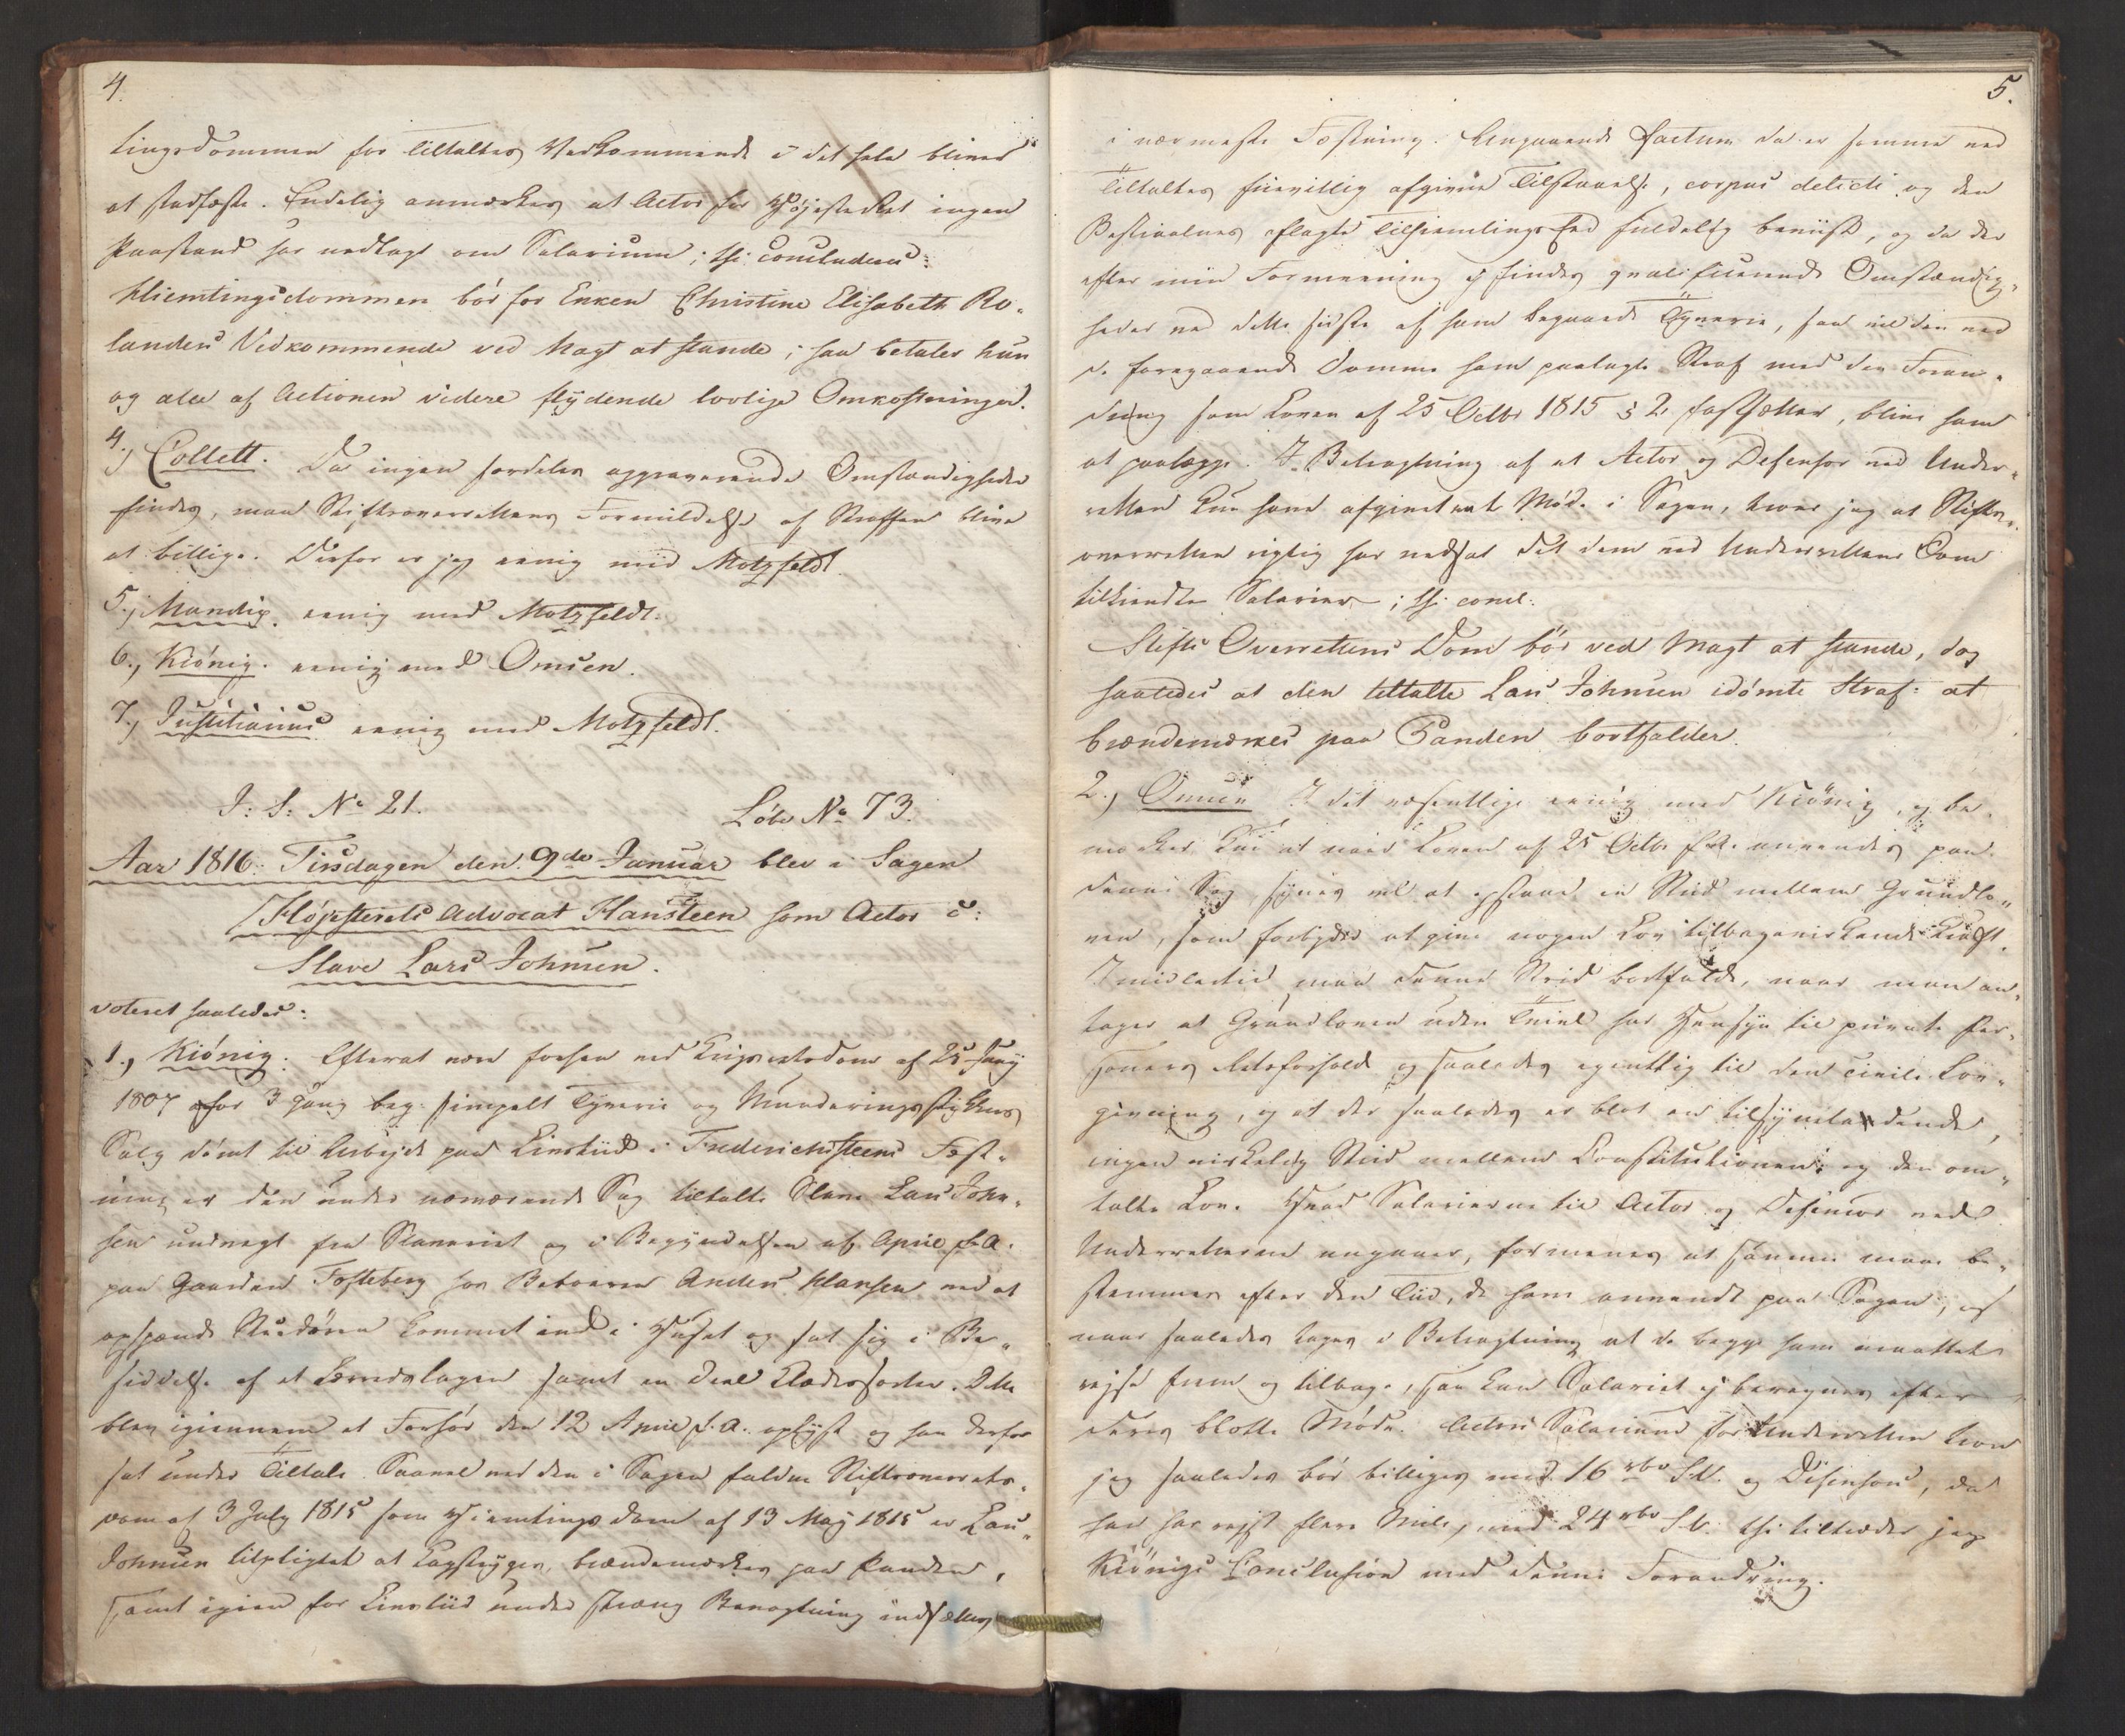 4.
tingsdommen for Tiltaltes Vedkommende i det hele bliver
at stadfæste. Endelig anmærkes at Actor for Højesteret ingen
Paastand har nedlagt om Salarium; thi concluderes:
Hiemtingsdommen bør for Enken Christine Elisabeth Ro-
landers Vedkommende ved Magt at stande; saa betaler hun
og alle af Actionen videre flydende lovlige Omkostninger.
4.) Collett. Da ingen særdeles aggraverende Omstændigheder
findes, maa Stiftsoverrettens Formildelse af Straffen blive
at billige. Derfor er jeg eenig med Motzfeldt.
5.) Mandix. eenig med Motzfeldt.
6.) Kiønig. eenig med Omsen.
7.) Justitiarius eenig med Motzfeldt.
J: S: No 21. Løbe No 73.
Aar 1816. Tirsdagen den 9de Januar blev i Sagen
Høyesterets Advocat Hansteen som Actor c:
Slave Lars Johnsen.
voteret saaledes:
1.) Kiønig. Efterat være forhen ved Krigsretsdom af 25 Juny
1807 for 3 Gang beg. simpelt Tyverie og Munderingsstykkers
Salg dømt til Arbejde paa Livstiid i Frederichsteens Fæst-
ning er den under nærværende Sag tiltalte Slave Lars John-
sen undvegt fra Slaveriet og i Begyndelsen af April f. A.
paa Gaarden Tosteberg hos Beboeren Anders Hansen ved at
opspænde Stuedøren kommet ind i Huset og sat sig i Be-
siddelse af et Sørvedslagen samt en Deel Klædessorter. Dette
blev igiennem et Forhør den 12 April f. A. oplyst og han derfor
sat under Tiltale. Saavel ved den i Sagen faldne Stiftsoverrets-
dom af 3 July 1815 som Hiemtingsdom af 13 May 1815 er Lars
Johnsen tilpligtet at Kagstryges, brændemærkes paa Panden,
samt igien for Livstiid under streng Bevogtning indsættes
5.
i nærmeste Fæstning. Angaaende Factum da er samme ved
Tiltaltes friivillig afgivne Tilstaaelse, corpus delicti og den
Bestiaalnes aflagte Tilhiemlings Eed fuldelig beviist, og da der
efter min Formeening ej findes qvalificerende Omstændig-
heder ved dette sidste af ham begaaede Tyverie, saa vil den ved
de foregaaende Domme ham paalagte Straf med den Foran-
dring som Loven af 25 Octbr 1815 § 2. fastsætter, blive ham
at paalægge. I Betragtning af at Actor og Defensor ved Under-
retten kun have afgivet eet Møde i Sagen, troer jeg at Stifts-
overretten rigtig har nedsat det dem ved Underrettens Dom
tilkiendte Salarier; thi concl:
Stifts Overrettens Dom bør ved Magt at stande, dog
saaledes at den tiltalte Lars Johnsen idømte Straf: at
brændemærkes paa Panden bortfalder.
2.) Omsen I det væsentlige eenig med Kiønig, og be-
mærker kun at naar Loven af 25 Octbr f. A. anvendes paa
denne Sag, synes vel at opstaae en Strid mellem Grundlo-
ven, som forbyder at give nogen Lov tilbagevirkende Kraft.
Imidlertid maa denne Strid bortfalde, naar man an-
tager at Grundloven uden Tvivl har Hensyn til private Per-
soners Retsforhold og saaledes egentlig til den civile Lov-
givning, og at der saaledes er blot en tilsyneladende,
ingen virkelig Strid mellem Constitutionen og den om-
talte Lov. Hvad Salarierne til Actor og Defensor ved
Underretterne angaaer, formenes at samme maae be-
stemmes efter den Tiid, de have anvendt paa Sagen, og
naar saaledes tages i Betragtning at de begge have maattet
rejse frem og tilbage, saa kan Salariet ej beregnes efter
deres blotte Møde. Actors Salarium for Underretten troer
jeg saaledes bør billiges med 16 rbd S.V. og Defensors, da
han har rejst flere Mile, med 24 rbd S.V. thi tiltræder jeg
Kiønigs Conclusion med denne Forandring.